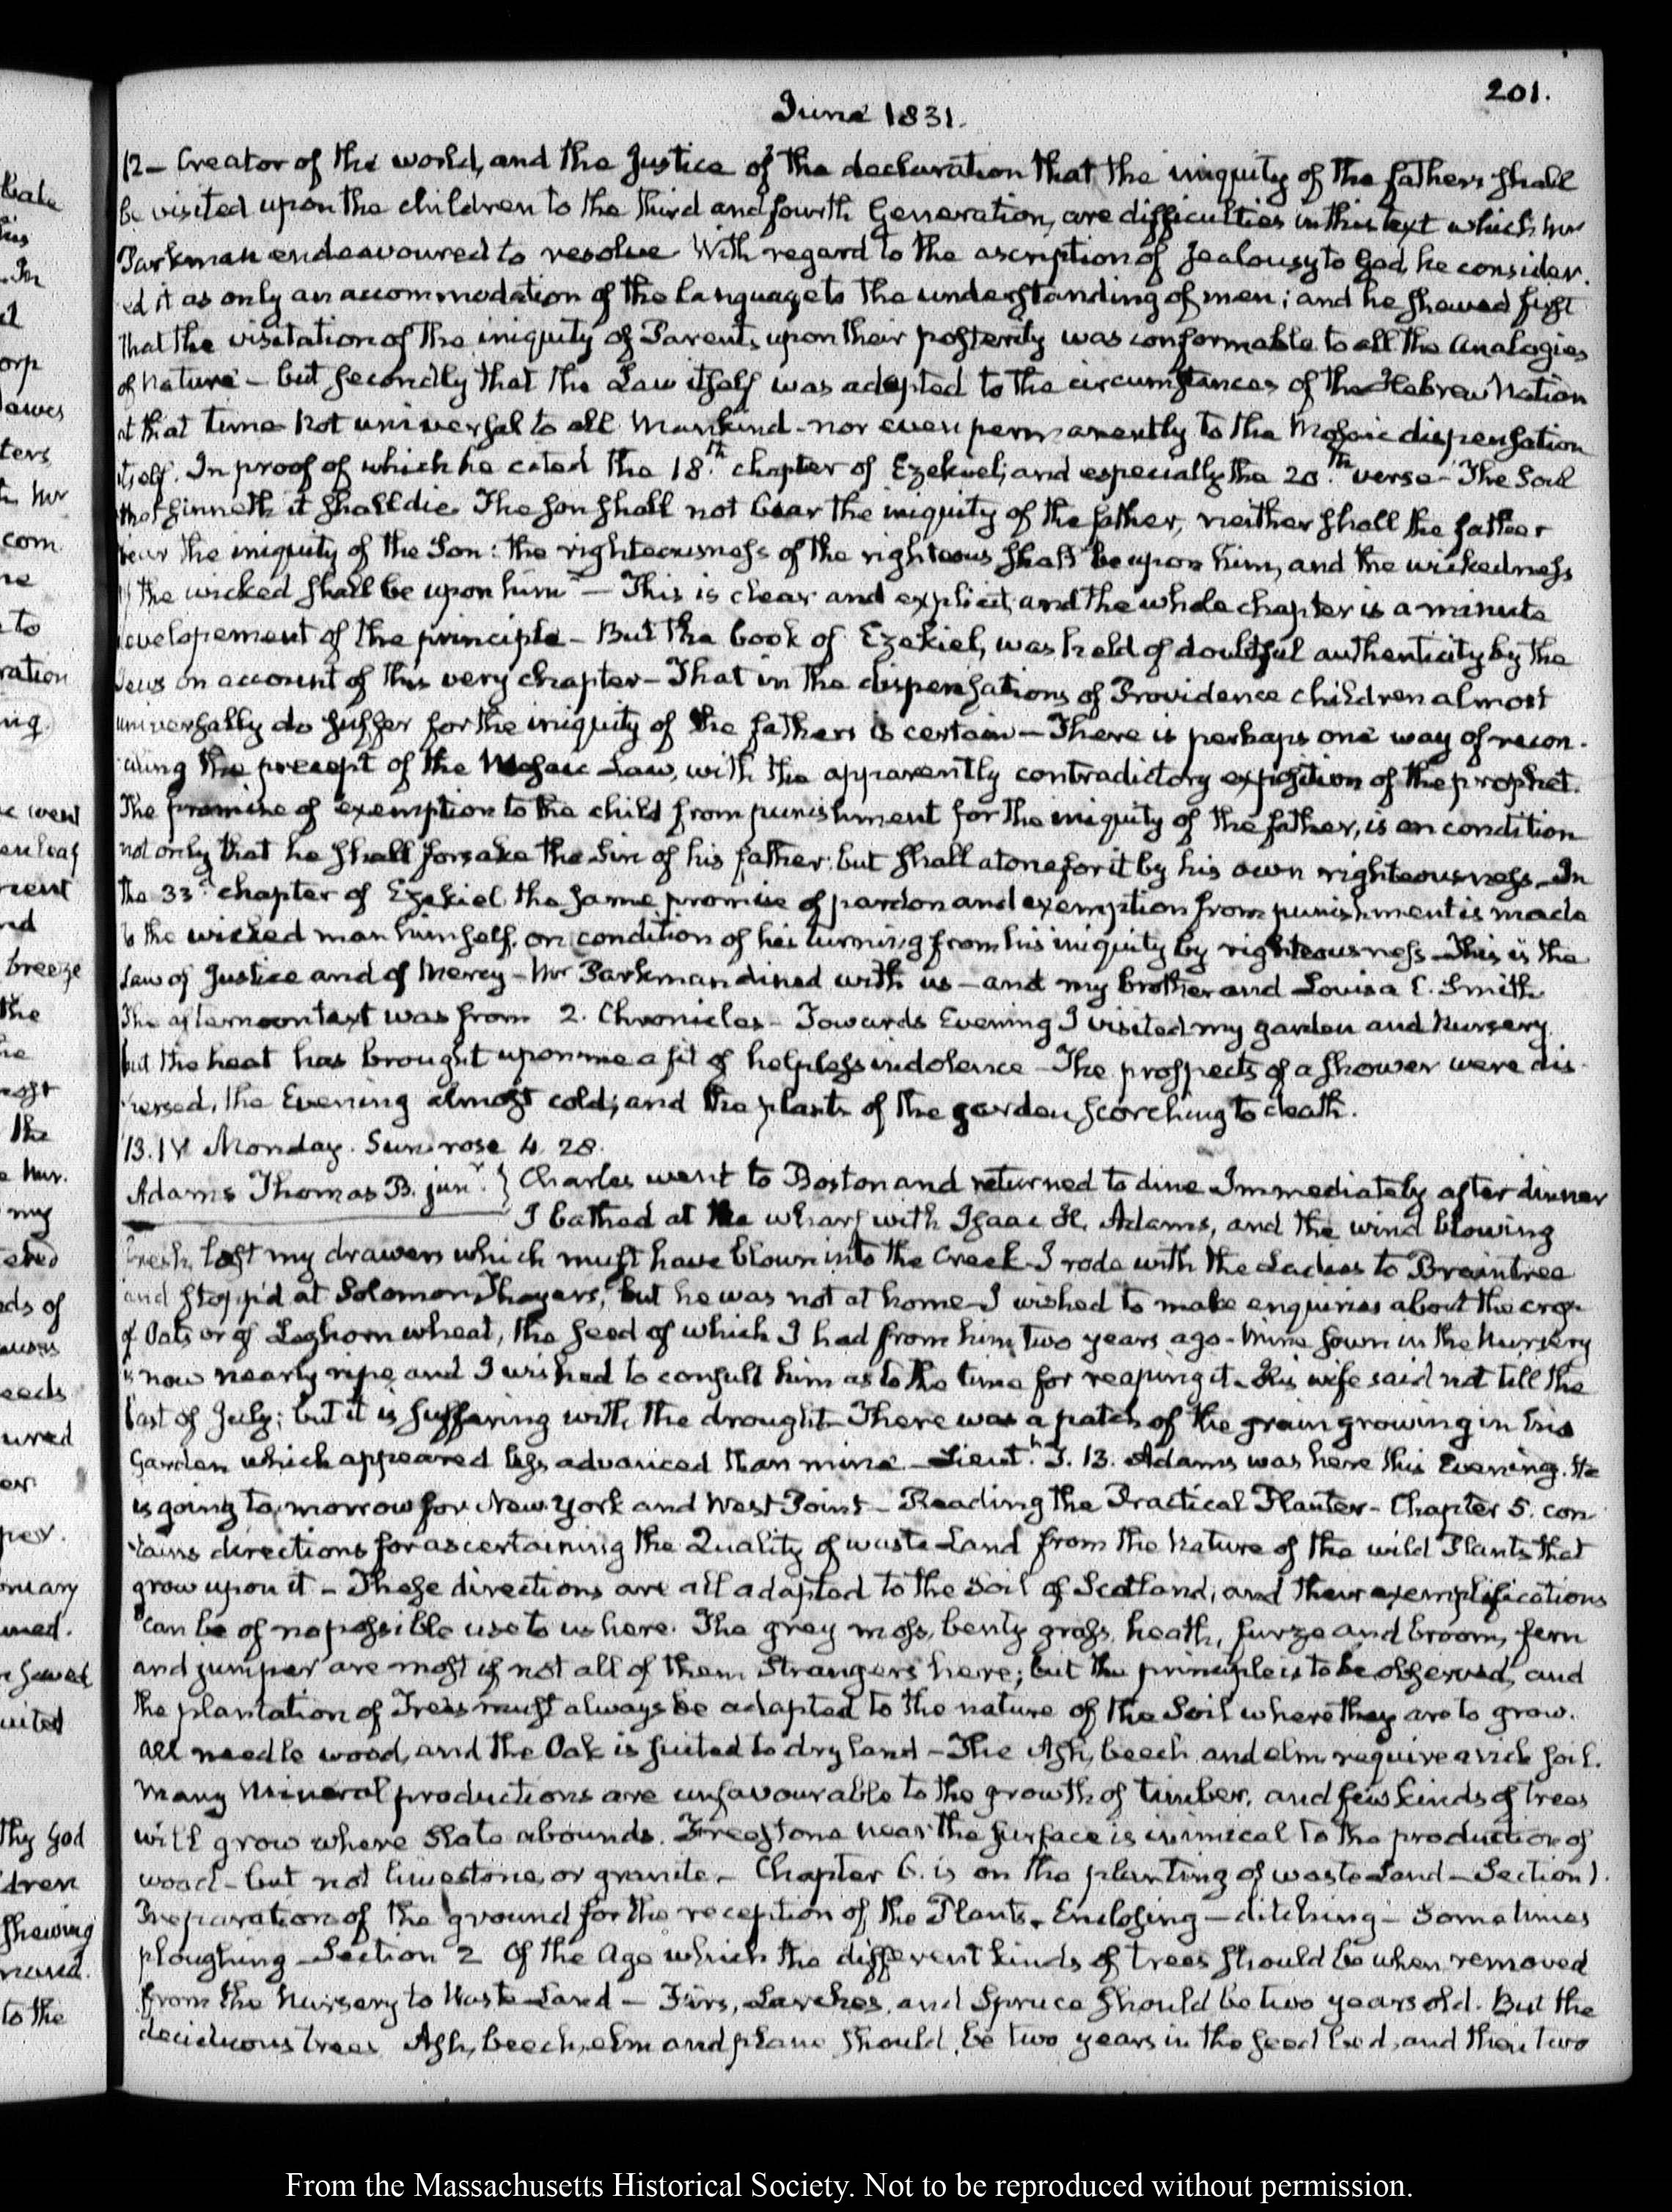 201.
June 1831.
12 – Creator of the world, and the Justice of the declaration that the iniquity of the fathers shall
be visited upon the children to the third and fourth Generation, are difficulties in this text which Mr
Parkman endeavoured to resolve With regard to the ascription of jealousy to God, he consider-
ed it as only an accommodation of the language to the understanding of men; and he shewed first
that the visitation of the iniquity of Parents upon their posterity was conformable to all the Analogies
of Nature – but secondly that the Law itself was adapted to the circumstances of the Hebrew Nation
at that time not universal to all Mankind – nor even permanently to the Mosaic dispensation
itself. In proof of which he cited the 18.th chapter of Ezekiel; and especially the 20.th verse – The Soul
that sinneth it shall die. The son shall not bear the iniquity of the father, neither shall the father
bear the iniquity of the Son: the righteousness of the righteous shall be upon him, and the wickedness
of the wicked shall be upon him" – This is clear and explicit, and the whole chapter is a minute
developement of the principle – But the book of Ezekiel, was held of doubtful authenticity by the
Jews on account of this very chapter – That in the dispensations of Providence children almost
universally do suffer for the iniquity of the fathers is certain – There is perhaps one way of recon-
ciling the precept of the Mosaic Law, with the apparently contradictory exposition of the prophet.
The promise of exemption to the child from punishment for the iniquity of the father, is on condition
not only that he shall forsake the Sin of his father; but shall atone for it by his own righteousness – In
the 33.d chapter of Ezekiel the same promise of pardon and exemption from punishment is made
to the wicked man himself, on condition of his turning from his iniquity by righteousness – This is the
Law of Justice and of Mercy – Mr Parkman dined with us – and my brother and Louisa C. Smith
The afternoon text was from 2. Chronicles – Towards Evening I visited my garden and Nursery
but the heat has brought upon me a fit of helpless indolence – The prospects of a shower were dis-
persed, the Evening almost cold; and the plants of the garden scorching to death.
13. IV Monday. Sun rose 4. 28.
Adams Thomas B. junr. } Charles went to Boston and returned to dine Immediately after dinner
I bathed at the wharf with Isaac H. Adams, and the wind blowing
fresh, lost my drawers which must have blown into the Creek – I rode with the Ladies to Braintree
and stopp'd at Solomon Thayers, but he was not at home – I wished to make enquiries about the crop
of Oats or of Leghorn wheat, the seed of which I had from him two years ago – Mine sown in the Nursery
is now nearly ripe, and I wished to consult him as to the time for reaping it – His wife said not till the
last of July; but it is suffering with the drought – There was a patch of the grain growing in his
Garden which appeared less advanced than mine – Lieut.t T. B. Adams was here this Evening. He
is going to-morrow for New York and West Point – Reading the Practical Planter – Chapter 5. con-
tains directions for ascertaining the Quality of waste Land from the Nature of the wild Plants that
grow upon it – These directions are all adapted to the Soil of Scotland, and their exemplifications
can be of no possible use to us here. The grey moss, benty grass, heath, furze and broom, fern
and juniper are most if not all of them Strangers here; but the principle is to be observed, and
the plantation of Trees must always be adapted to the nature of the Soil where they are to grow.
All needle wood, and the Oak is suited to dry land – The Ash, beech and elm require a rich soil.
Many Mineral productions are unfavourable to the growth of timber, and few kinds of trees
will grow where Slate abounds. Freestone near the surface is inimical to the production of
wood – but not limestone, or granite – Chapter 6. is on the planting of waste Land – Section 1.
Preparation of the ground for the reception of the Plants – Enclosing – ditching – Sometimes
ploughing – Section 2 Of the Age which the different kinds of trees should be when removed
from the Nursery to Waste Land – Firs, Larches, and Spruce should be two years old. But the
deciduous trees Ash, beech, elm and plane should, be two years in the seed bed, and then two
From the Massachusetts Historical Society. Not to be reproduced without permission.